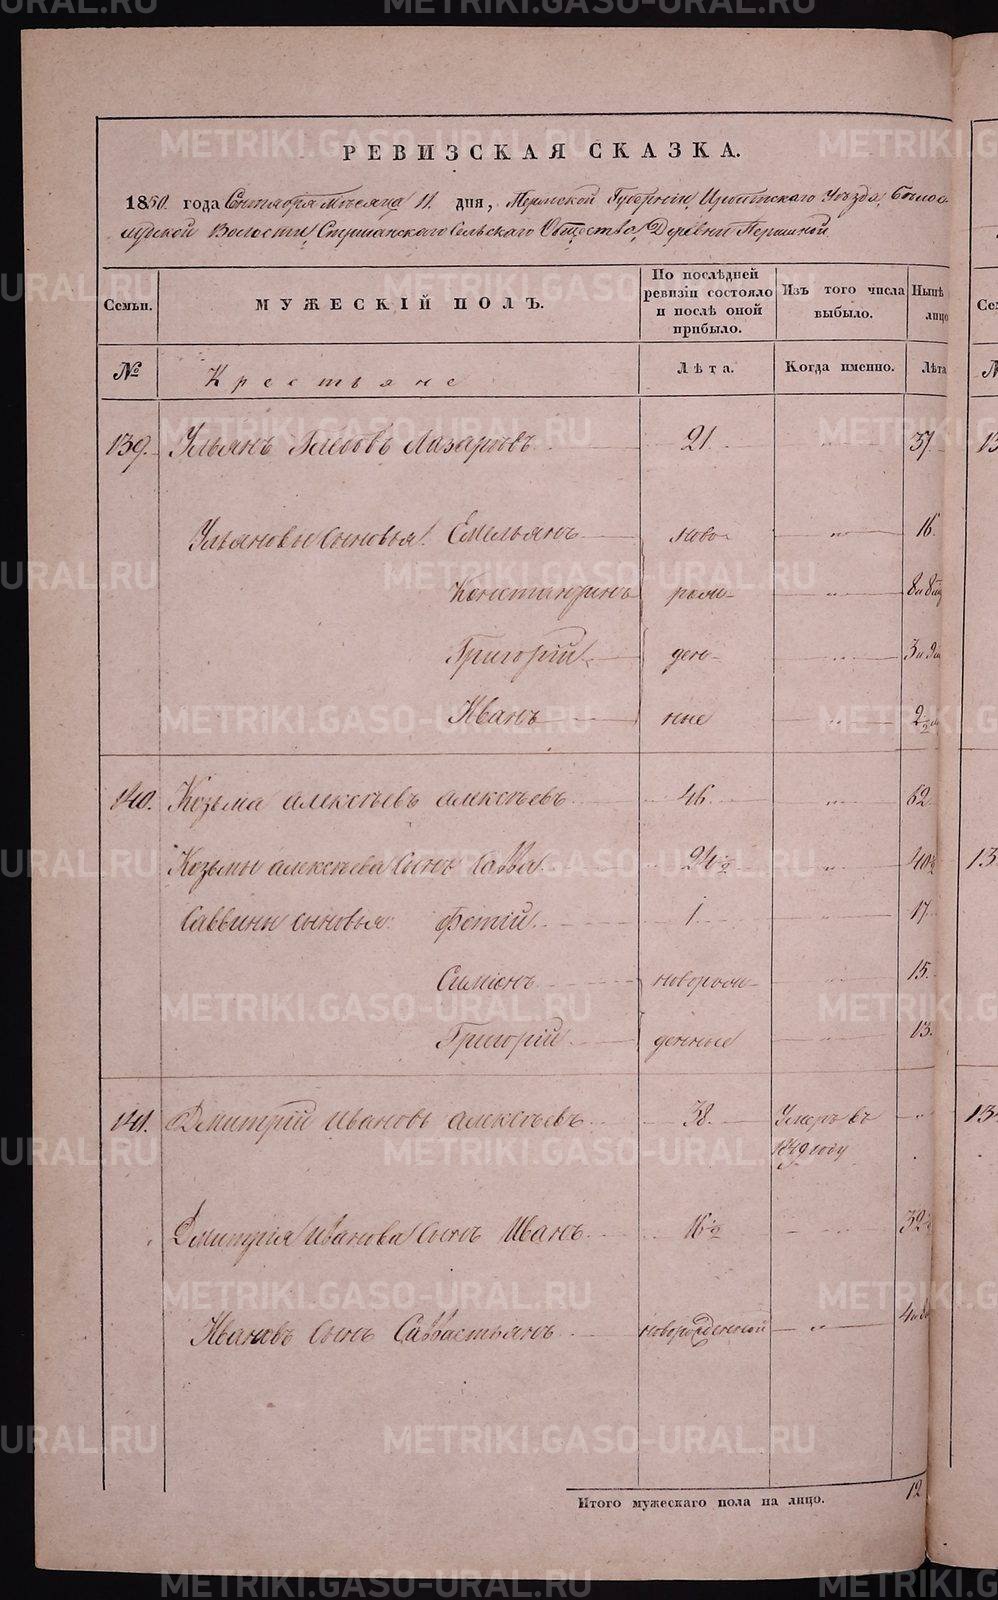 РЕВИЗСКАЯ СКАЗКА.
1850. года Сентября Месяца 11. дня, Пермской Губернии, Ирбитского Уезда,
Волости, Сельского Общества, Деревни Першиной
Семьи.
МУЖЕСКІЙ ПОЛЪ.
По послѣдней ревизіи состояло и послѣ оной прибыло.
Изъ того числа выбыло.
Нынѣ лицо
№
Крестьяне
Лѣта.
Когда именно.
Лѣта
139. Ульянъ Глебовъ Лазаревъ 21. " 37.
Ульяновы Сыновья. Емельянъ ново- " 16.
Константинъ рож- "
Григорій ден- "
Иванъ ные "
140. Козьма алексѣевъ алексѣевъ 46. 62
Козьмы алексѣева Сынъ Савва. 24½ " 40½
Саввины сыновья: Фетій 1. " 17
Симіонъ новорож- " 15.
Григорій денные " 13.
141. Дмитрій Ивановъ алексѣевъ 38. Умеръ въ "
1849 году
Дмитрія Иванова Сынъ Иванъ 16½
Ивановъ Сынъ Саввастьянъ новорожденной "
Итого мужескаго пола на лицо. 12
METRIKI.GASO-URAL.RU